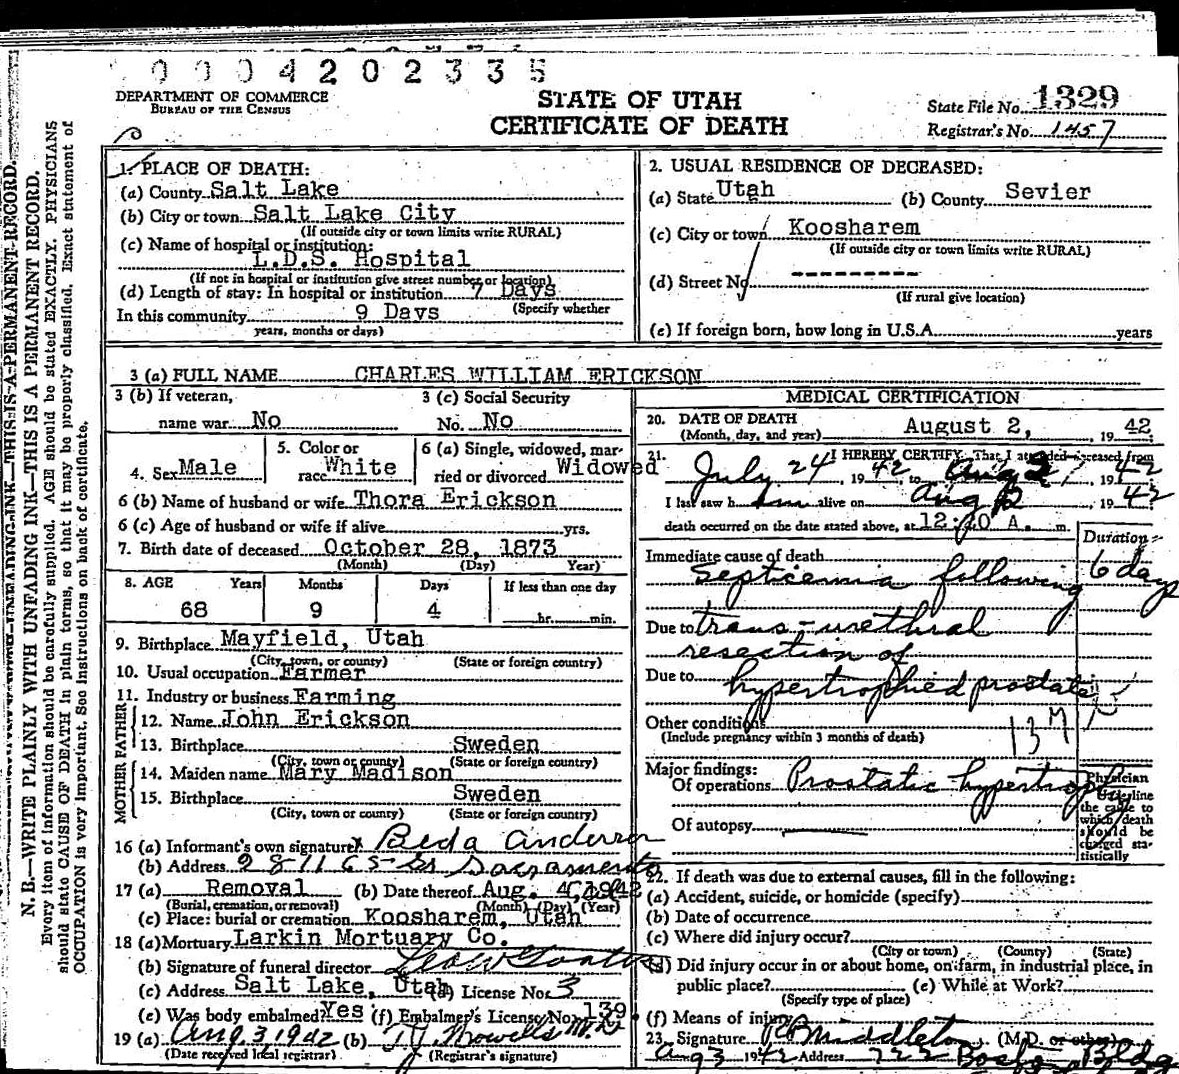 0004202335
DEPARTMENT OF COMMERCE
BUREAU OF THE CENSUS
STATE OF UTAH
CERTIFICATE OF DEATH
State File No. 1329
Registrar's No. 1457
N. B.—WRITE PLAINLY WITH UNFADING INK—THIS IS A PERMANENT RECORD.
Every item of information should be carefully supplied. AGE should be stated EXACTLY. PHYSICIANS
should state CAUSE OF DEATH in plain terms, so that it may be properly classified. Exact statement of
OCCUPATION is very important. See instructions on back of certificate.
1. PLACE OF DEATH:
(a) County Salt Lake
(b) City or town Salt Lake City
(If outside city or town limits write RURAL)
(c) Name of hospital or institution:
L.D.S. Hospital
(If not in hospital or institution give street number or location)
(d) Length of stay: In hospital or institution 7 Days
(Specify whether
In this community 9 Days
years, months or days)
2. USUAL RESIDENCE OF DECEASED:
(a) State Utah (b) County Sevier
(c) City or town Koosharem
(If outside city or town limits write RURAL)
(d) Street No. ----------
(If rural give location)
(e) If foreign born, how long in U.S.A. years
3 (a) FULL NAME CHARLES WILLIAM ERICKSON
3 (b) If veteran, 3 (c) Social Security
name war No No. No
4. Sex Male 5. Color or race White 6 (a) Single, widowed, married or divorced Widowed
6 (b) Name of husband or wife Thora Erickson
6 (c) Age of husband or wife if alive yrs.
7. Birth date of deceased October 28, 1873
(Month) (Day) Year)
8. AGE Years Months Days If less than one day
68 9 4 hr. min.
9. Birthplace Mayfield, Utah
(City, town, or county) (State or foreign country)
10. Usual occupation Farmer
11. Industry or business Farming
FATHER
12. Name John Erickson
13. Birthplace Sweden
(City, town or county) (State or foreign country)
MOTHER
14. Maiden name Mary Madison
15. Birthplace Sweden
(City, town or county) (State or foreign country)
16 (a) Informant's own signature x Beda Anderson
(b) Address 2811 65 St Sacramento
17 (a) Removal (b) Date thereof Aug. 4, 1942
(Burial, cremation, or removal) (Month) (Day) (Year)
(c) Place: burial or cremation Koosharem, Utah
18 (a) Mortuary Larkin Mortuary Co.
(b) Signature of funeral director
(c) Address Salt Lake, Utah (d) License No. 3
(e) Was body embalmed? Yes (f) Embalmer's License No. 139
19 (a) Aug. 3, 1942 (b) T.J. Howells M.D.
(Date received local registrar) (Registrar's signature)
MEDICAL CERTIFICATION
20. DATE OF DEATH
(Month, day, and year) August 2, 1942
21. I HEREBY CERTIFY, That I attended deceased from
July 24 1942, to Aug 2, 1942
I last saw him alive on Aug 2 1942
death occurred on the date stated above, at 12: A. m.
Duration
Immediate cause of death
Septicemia following 6 days
Due to trans-urethral
resection of
Due to hypertrophied prostate
Other conditions
(Include pregnancy within 3 months of death)
Major findings:
Of operations Prostatic hypertrophy
Of autopsy
Physician
Underline
the cause to
which death
should be
charged statistically
22. If death was due to external causes, fill in the following:
(a) Accident, suicide, or homicide (specify)
(b) Date of occurrence
(c) Where did injury occur?
(City or town) (County) (State)
(d) Did injury occur in or about home, on farm, in industrial place, in
public place? (e) While at Work?
(Specify type of place)
(f) Means of injury
23. Signature Middleton (M.D. or other)
Aug 3 1942 Address 722 Boston Bldg